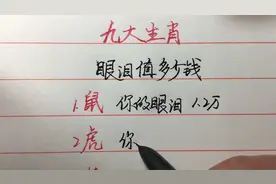 九大生肖
眼泪值多少钱
1.鼠 你的眼泪 1.2万
2虎 你